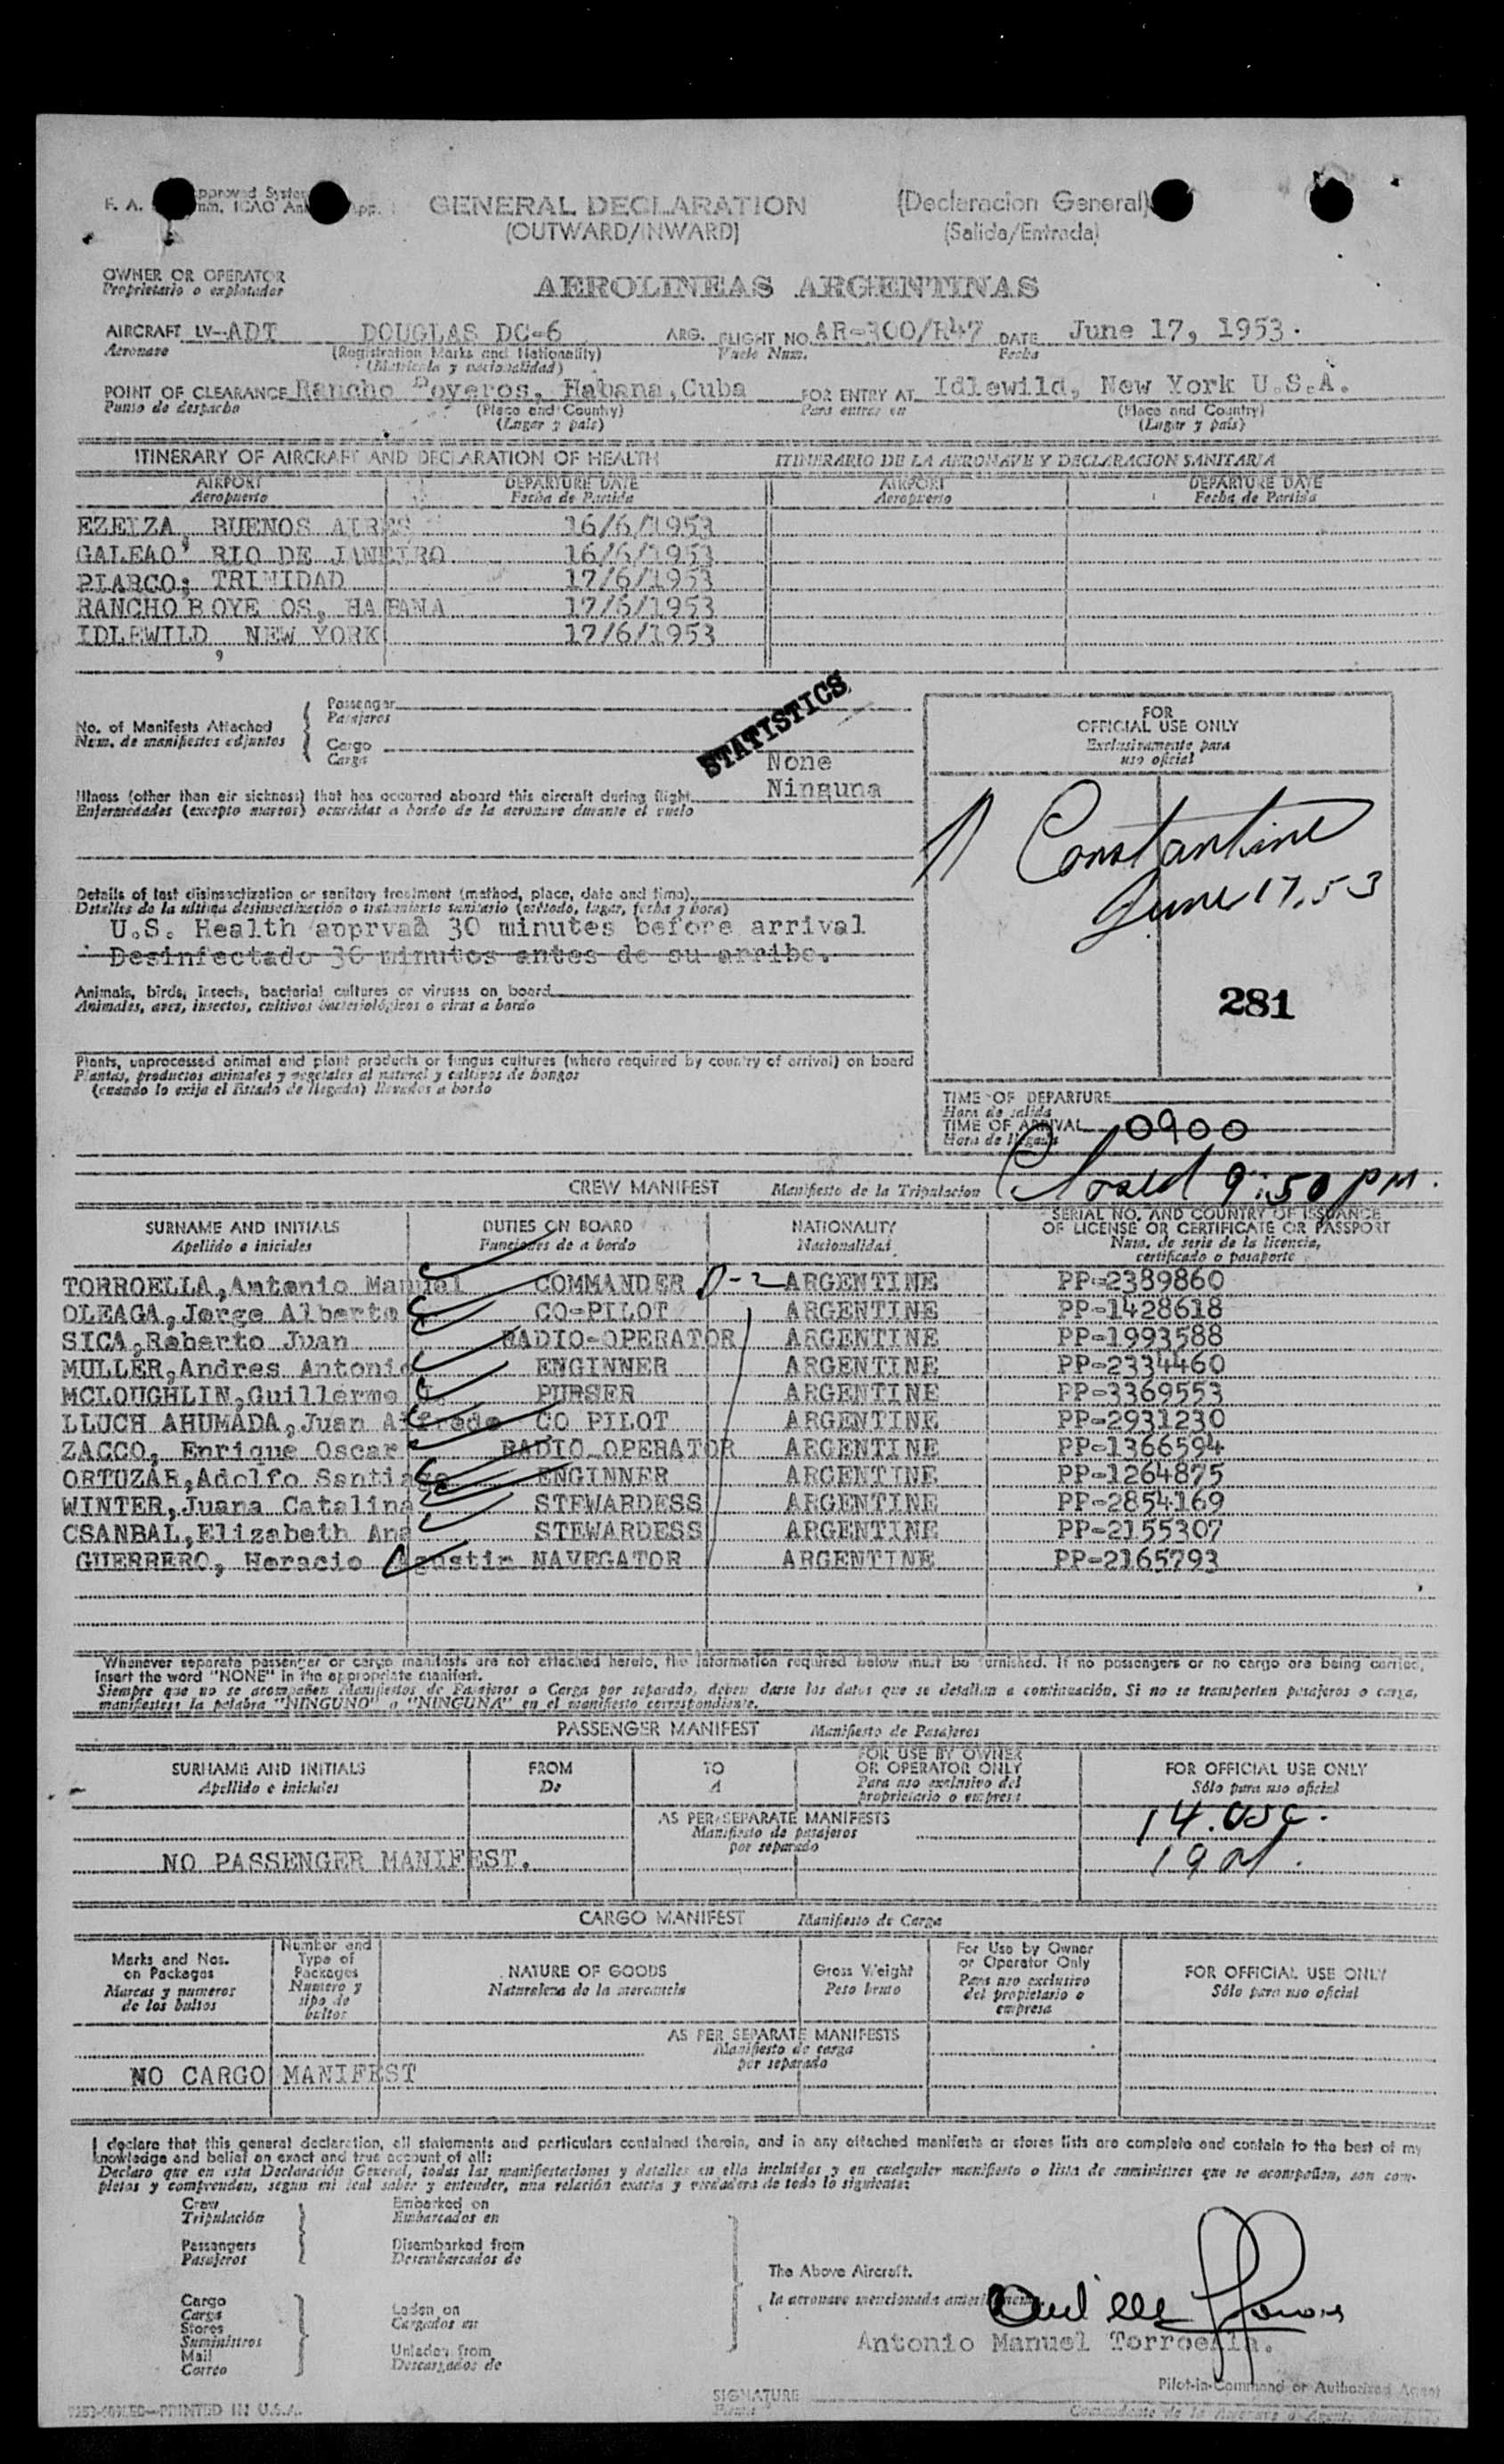 F. A. pproved System
mm. ICAO An App.
GENERAL DECLARATION (Declaracion General)
(OUTWARD/INWARD) (Salida/Entrada)
OWNER OR OPERATOR
Proprietario o explotador
AEROLINEAS ARGENTINAS
AIRCRAFT LV-ADT DOUGLAS DC-6 ARG. FLIGHT NO. AR-300/R47 DATE June 17, 1953.
Aeronave (Registration Marks and Nationality) Vuelo Num. Fecha
(Matricula y nacionalidad)
POINT OF CLEARANCE Rancho Boyeros, Habana, Cuba FOR ENTRY AT Idlewild, New York U.S.A.
Punto de despacho (Place and Country) Para entrar en (Place and Country)
(Lugar y pais) (Lugar y pais)
ITINERARY OF AIRCRAFT AND DECLARATION OF HEALTH ITINERARIO DE LA AERONAVE Y DECLARACION SANITARIA
AIRPORT DEPARTURE DATE AIRPORT DEPARTURE DATE
Aeropuerto Fecha de Partida Aeropuerto Fecha de Partida
EZEIZA, BUENOS AIRES 16/6/1953
GALEAO, RIO DE JANEIRO 16/6/1953
PIARCO; TRINIDAD 17/6/1953
RANCHO BOYE OS, HABANA 17/6/1953
IDLEWILD, NEW YORK 17/6/1953
Passenger
Pasajeros
No. of Manifests Attached
Num. de manifiestos adjuntos
Cargo
Carga
STATISTICS
None
Ninguna
Illness (other than air sickness) that has occurred aboard this aircraft during flight
Enfermedades (excepto mareos) ocurridas a bordo de la aeronave durante el vuelo
Details of last disinsectization or sanitary treatment (method, place, date and time)
Detalles de la ultima desinsectización o tratamiento sanitario (método, lugar, fecha y hora)
U.S. Health apprvad 30 minutes before arrival
Desinfectado 30 minutos antes de su arribo.
Animals, birds, insects, bacterial cultures or viruses on board
Animales, aves, insectos, cultivos bacteriológicos o virus a bordo
Plants, unprocessed animal and plant products or fungus cultures (where required by country of arrival) on board
Plantas, productos animales y vegetales al natural y cultivos de hongos
(cuando lo exija el Estado de llegada) llevados a bordo
FOR
OFFICIAL USE ONLY
Exclusivamente para
uso oficial
Constantine
June 17.53
281
TIME OF DEPARTURE
Hora de salida
TIME OF ARRIVAL 0900
Hora de llegada
Closed 9:50 PM.
CREW MANIFEST Manifiesto de la Tripulacion
SURNAME AND INITIALS DUTIES ON BOARD NATIONALITY SERIAL NO. AND COUNTRY OF ISSUANCE
OF LICENSE OR CERTIFICATE OR PASSPORT
Apellido e iniciales Funciones de a bordo Nacionalidad Num. de serie de la licencia,
certificado o pasaporte
TORROELLA, Antonio Manuel COMMANDER D-2 ARGENTINE PP-2389860
OLEAGA, Jorge Alberto CO-PILOT ARGENTINE PP-1428618
SICA, Roberto Juan RADIO-OPERATOR ARGENTINE PP-1993588
MULLER, Andres Antonio ENGINNER ARGENTINE PP-2334460
MCLOUGHLIN, Guillermo J. PURSER ARGENTINE PP-3369553
LLUCH AHUMADA, Juan Alfredo CO PILOT ARGENTINE PP-2931230
ZACCO, Enrique Oscar RADIO-OPERATOR ARGENTINE PP-1366594
ORTUZAR, Adolfo Santiago ENGINNER ARGENTINE PP-1264875
WINTER, Juana Catalina STEWARDESS ARGENTINE PP-2854169
CSANBAL, Elizabeth Ana STEWARDESS ARGENTINE PP-2155307
GUERRERO, Horacio Agustin NAVEGATOR ARGENTINE PP-2165793
Whenever separate passenger or cargo manifests are not attached hereto, the information required below must be furnished. If no passengers or no cargo are being carried,
insert the word "NONE" in the appropriate manifest.
Siempre que no se acompañen Manifiestos de Pasajeros o Carga por separado, deben darse los datos que se detallan a continuación. Si no se transportan pasajeros o carga,
manifiestese la palabra "NINGUNO" o "NINGUNA" en el manifiesto correspondiente.
PASSENGER MANIFEST Manifiesto de Pasajeros
SURNAME AND INITIALS FROM TO FOR USE BY OWNER
OR OPERATOR ONLY FOR OFFICIAL USE ONLY
Apellido e iniciales De A Para uso exclusivo del
proprietario o empresa Sólo para uso oficial
AS PER SEPARATE MANIFESTS
Manifiesto de pasajeros
por separado
14. USC.
NO PASSENGER MANIFEST.
CARGO MANIFEST Manifiesto de Carga
Marks and Nos.
on Packages
Marcas y numeros
de los bultos
Number and
Type of
Packages
Numero y
tipo de
bultos
NATURE OF GOODS
Naturaleza de la mercancia
Gross Weight
Peso bruto
For Use by Owner
or Operator Only
Para uso exclusivo
del propietario o
empresa
FOR OFFICIAL USE ONLY
Sólo para uso oficial
AS PER SEPARATE MANIFESTS
Manifiesto de carga
por separado
NO CARGO MANIFEST
I declare that this general declaration, all statements and particulars contained therein, and in any attached manifests or stores lists are complete and contain to the best of my
knowledge and belief an exact and true account of all:
Declaro que en esta Declaración General, todas las manifestaciones y detalles en ella incluidos y en cualquier manifiesto o lista de suministros que se acompañen, son com-
pletos y comprenden, segun mi leal saber y entender, una relación exacta y verdadera de todo lo siguiente:
Crew Embarked on
Tripulación Embarcados en
Passengers Disembarked from
Pasajeros Desembarcados de
The Above Aircraft.
la aeronave mencionada anteriormente
Cargo
Carga
Stores
Suministros
Mail
Correo
Laden on
Cargados en
Unladen from
Descargados de
Antonio Manuel Torroella.
Pilot-in-Command or Authorized Agent
SIGNATURE
Firma
PRINTED IN U.S.A.